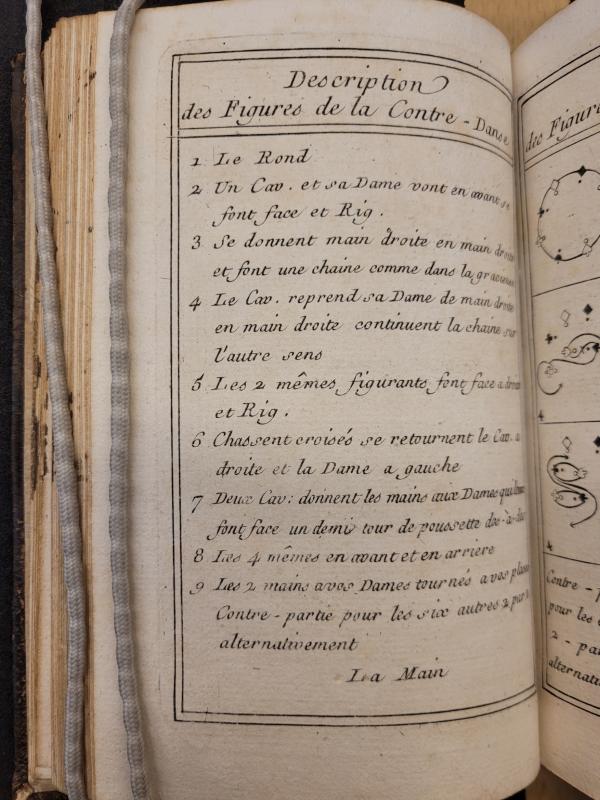 Description
des Figures de la Contre-Danse
1 Le Rond
2 Un Cav. et sa Dame vont en avant se
font face et Rig.
3 Se donnent main droite en main droite
et font une chaine comme dans la gracieuse
4 Le Cav. reprend sa Dame de main droite
en main droite continuent la chaine sur
l'autre sens
5 Les 2 mêmes figurants font face a droite
et Rig.
6 Chassent croisés se retournent le Cav. a
droite et la Dame a gauche
7 Deux Cav: donnent les mains aux Dames
font face un demi tour de poussette dos-à-dos
8 Les 4 mêmes en avant et en arriere
9 Les 2 mains a vos Dames tournés a vos places
Contre-partie pour les six autres 2 par 2
alternativement
La Main
des Figur
Contre-p
pour les
2-pa
alternati